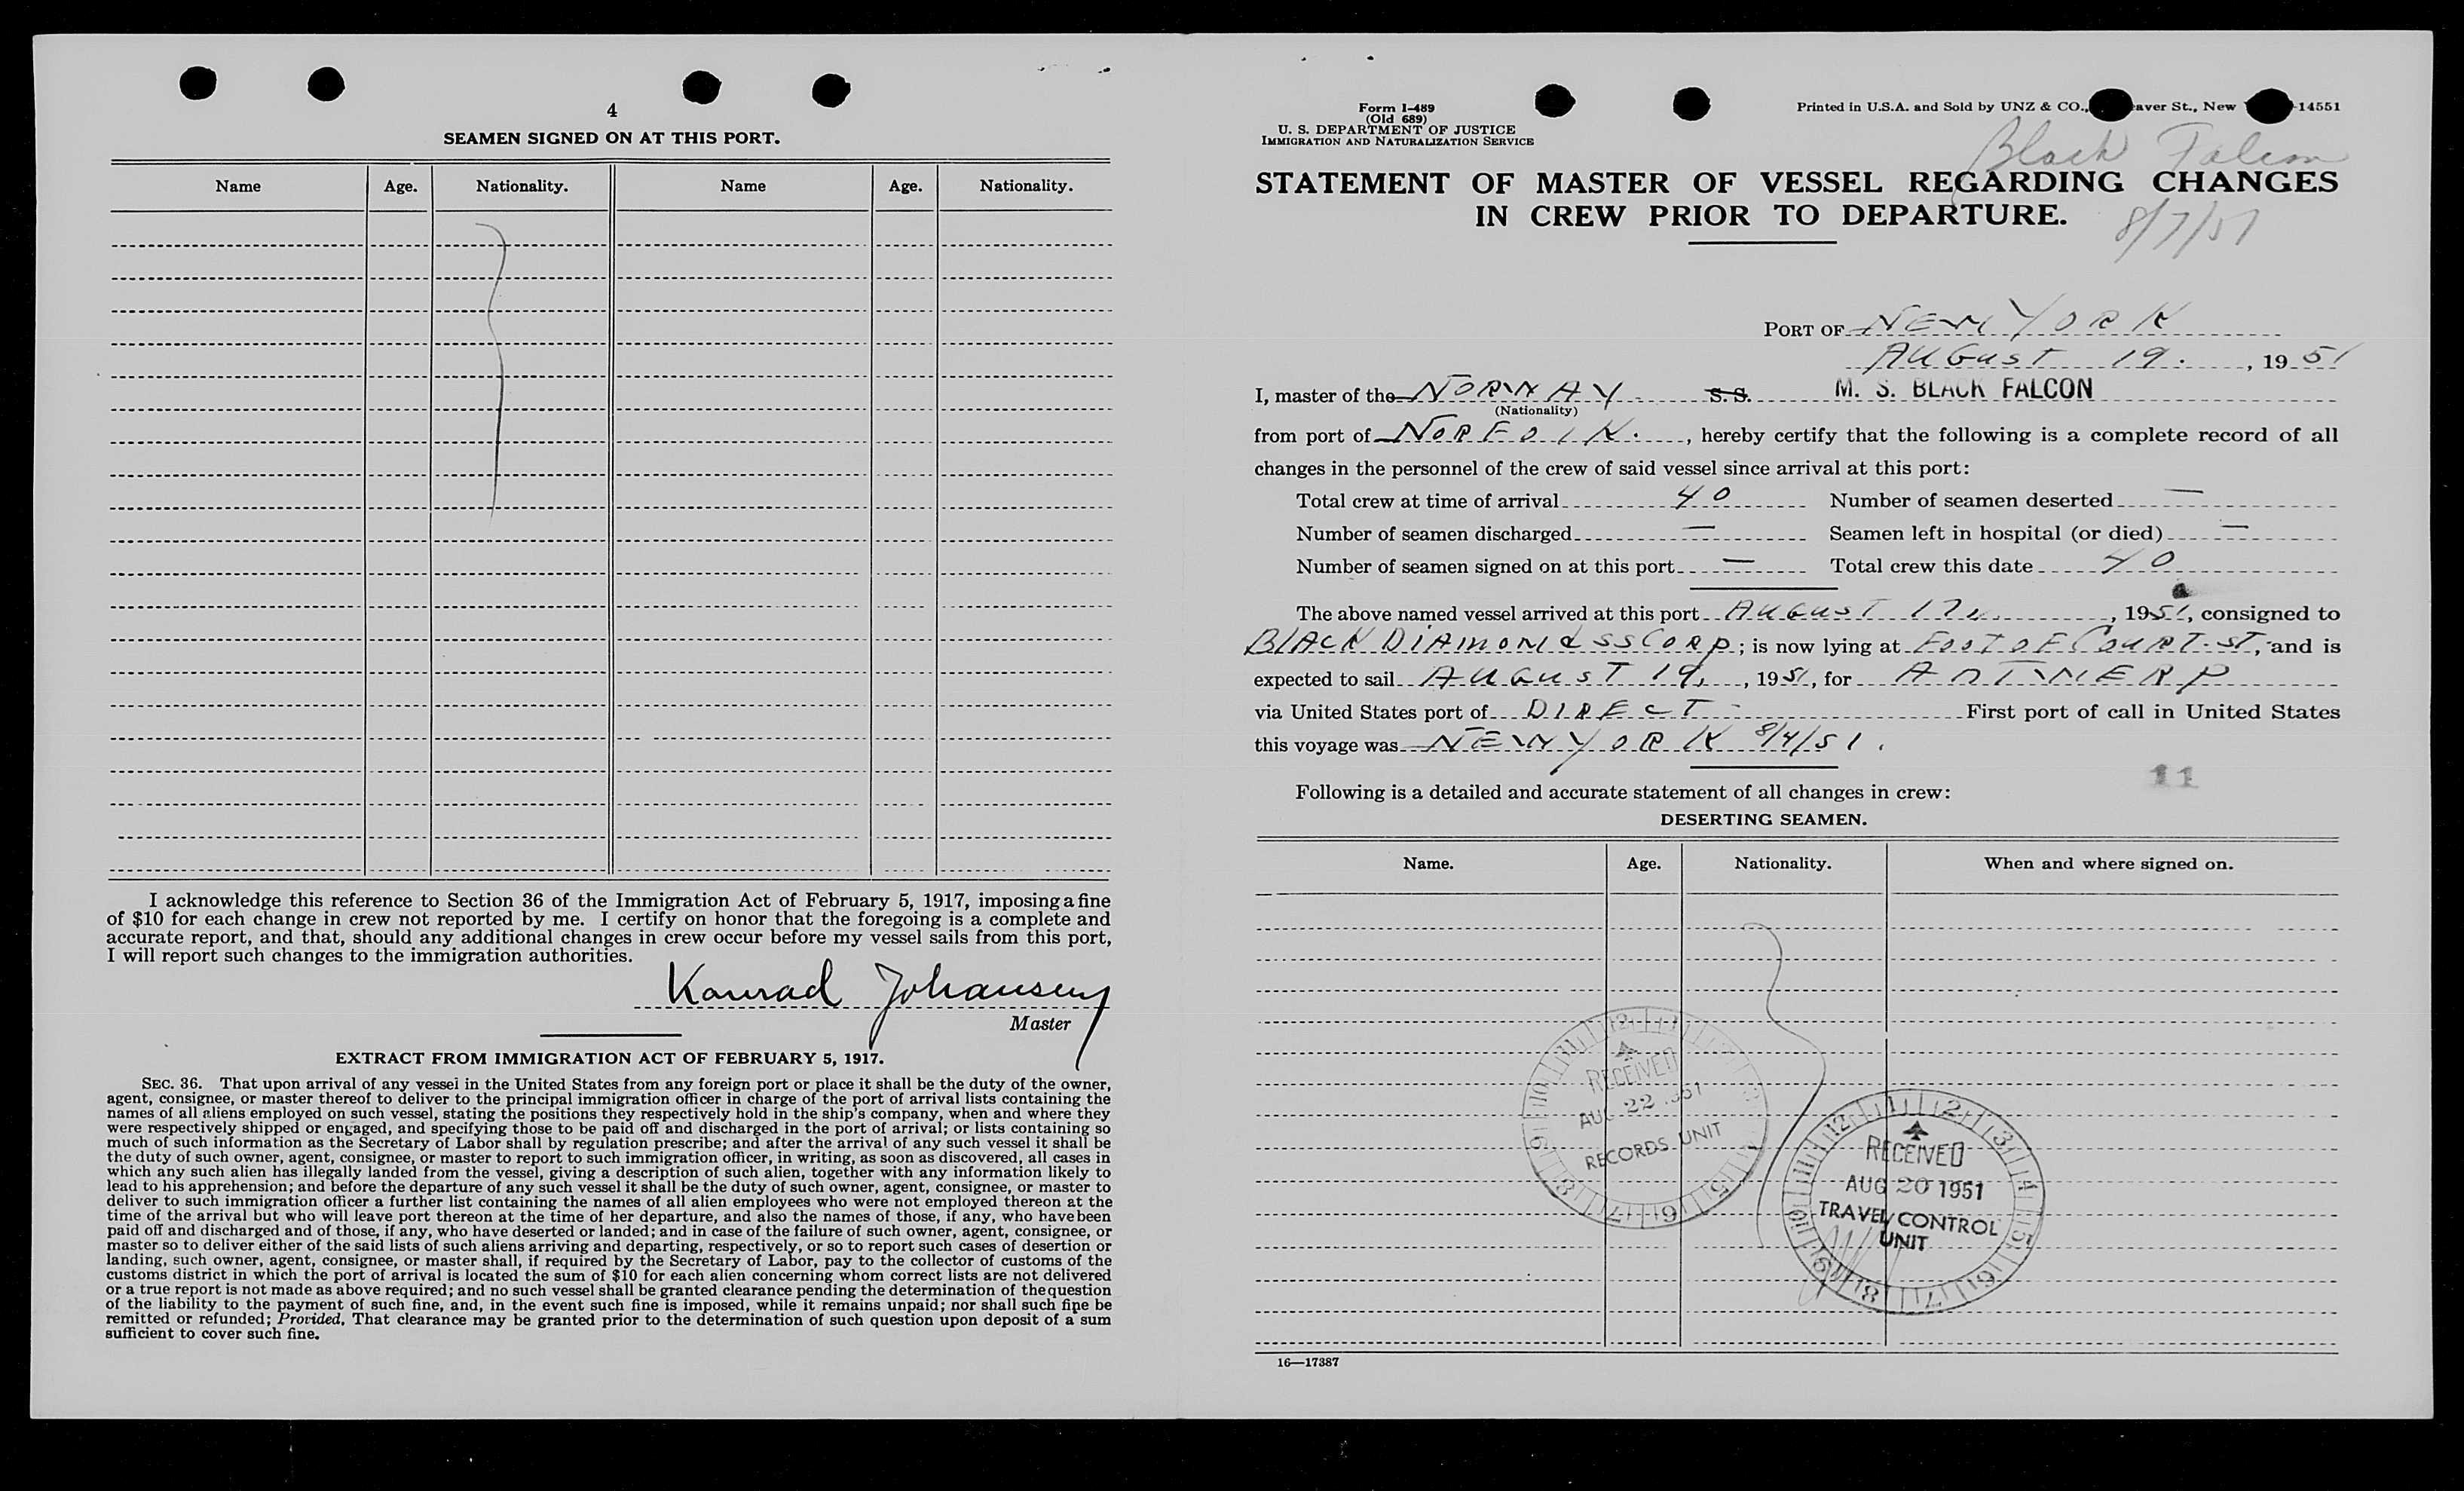 4
SEAMEN SIGNED ON AT THIS PORT.
Name Age. Nationality. Name Age. Nationality.
I acknowledge this reference to Section 36 of the Immigration Act of February 5, 1917, imposing a fine
of $10 for each change in crew not reported by me. I certify on honor that the foregoing is a complete and
accurate report, and that, should any additional changes in crew occur before my vessel sails from this port,
I will report such changes to the immigration authorities.
Konrad Johansen
Master
EXTRACT FROM IMMIGRATION ACT OF FEBRUARY 5, 1917.
SEC. 36. That upon arrival of any vessel in the United States from any foreign port or place it shall be the duty of the owner,
agent, consignee, or master thereof to deliver to the principal immigration officer in charge of the port of arrival lists containing the
names of all aliens employed on such vessel, stating the positions they respectively hold in the ship's company, when and where they
were respectively shipped or engaged, and specifying those to be paid off and discharged in the port of arrival; or lists containing so
much of such information as the Secretary of Labor shall by regulation prescribe; and after the arrival of any such vessel it shall be
the duty of such owner, agent, consignee, or master to report to such immigration officer, in writing, as soon as discovered, all cases in
which any such alien has illegally landed from the vessel, giving a description of such alien, together with any information likely to
lead to his apprehension; and before the departure of any such vessel it shall be the duty of such owner, agent, consignee, or master to
deliver to such immigration officer a further list containing the names of all alien employees who were not employed thereon at the
time of the arrival but who will leave port thereon at the time of her departure, and also the names of those, if any, who have been
paid off and discharged and of those, if any, who have deserted or landed; and in case of the failure of such owner, agent, consignee, or
master so to deliver either of the said lists of such aliens arriving and departing, respectively, or so to report such cases of desertion or
landing, such owner, agent, consignee, or master shall, if required by the Secretary of Labor, pay to the collector of customs of the
customs district in which the port of arrival is located the sum of $10 for each alien concerning whom correct lists are not delivered
or a true report is not made as above required; and no such vessel shall be granted clearance pending the determination of the question
of the liability to the payment of such fine, and, in the event such fine is imposed, while it remains unpaid; nor shall such fine be
remitted or refunded; Provided, That clearance may be granted prior to the determination of such question upon deposit of a sum
sufficient to cover such fine.
Form I-489
(Old 689)
U. S. DEPARTMENT OF JUSTICE
IMMIGRATION AND NATURALIZATION SERVICE
Printed in U.S.A. and Sold by UNZ & CO., aver St., New -14551
Black Falcon
STATEMENT OF MASTER OF VESSEL REGARDING CHANGES
IN CREW PRIOR TO DEPARTURE.
8/7/51
PORT OF NEW YORK
AUGUST 19. , 19 51
I, master of the NORWAY S. S. M. S. BLACK FALCON
(Nationality)
from port of NORFOLK. , hereby certify that the following is a complete record of all
changes in the personnel of the crew of said vessel since arrival at this port:
Total crew at time of arrival 40 Number of seamen deserted —
Number of seamen discharged — Seamen left in hospital (or died) —
Number of seamen signed on at this port — Total crew this date 40
The above named vessel arrived at this port AUGUST 17 , 1951, consigned to
BLACK DIAMOND SS CORP; is now lying at FOOT OF COURT. ST, and is
expected to sail AUGUST 19, , 1951, for ANTWERP
via United States port of DIRECT - First port of call in United States
this voyage was NEW YORK 8/4/51.
11
Following is a detailed and accurate statement of all changes in crew:
DESERTING SEAMEN.
Name. Age. Nationality. When and where signed on.
RECEIVED
AUG 22 1951
RECORDS UNIT
RECEIVED
AUG 20 1951
TRAVEL CONTROL
UNIT
16—17387